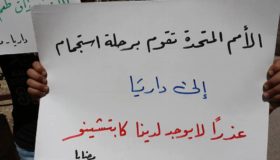 الأمم المتحدة تقوم برحلة استجمام
إلى داريا
عذرًا لايوجد لدينا كابتشينو
مضايا
داريا